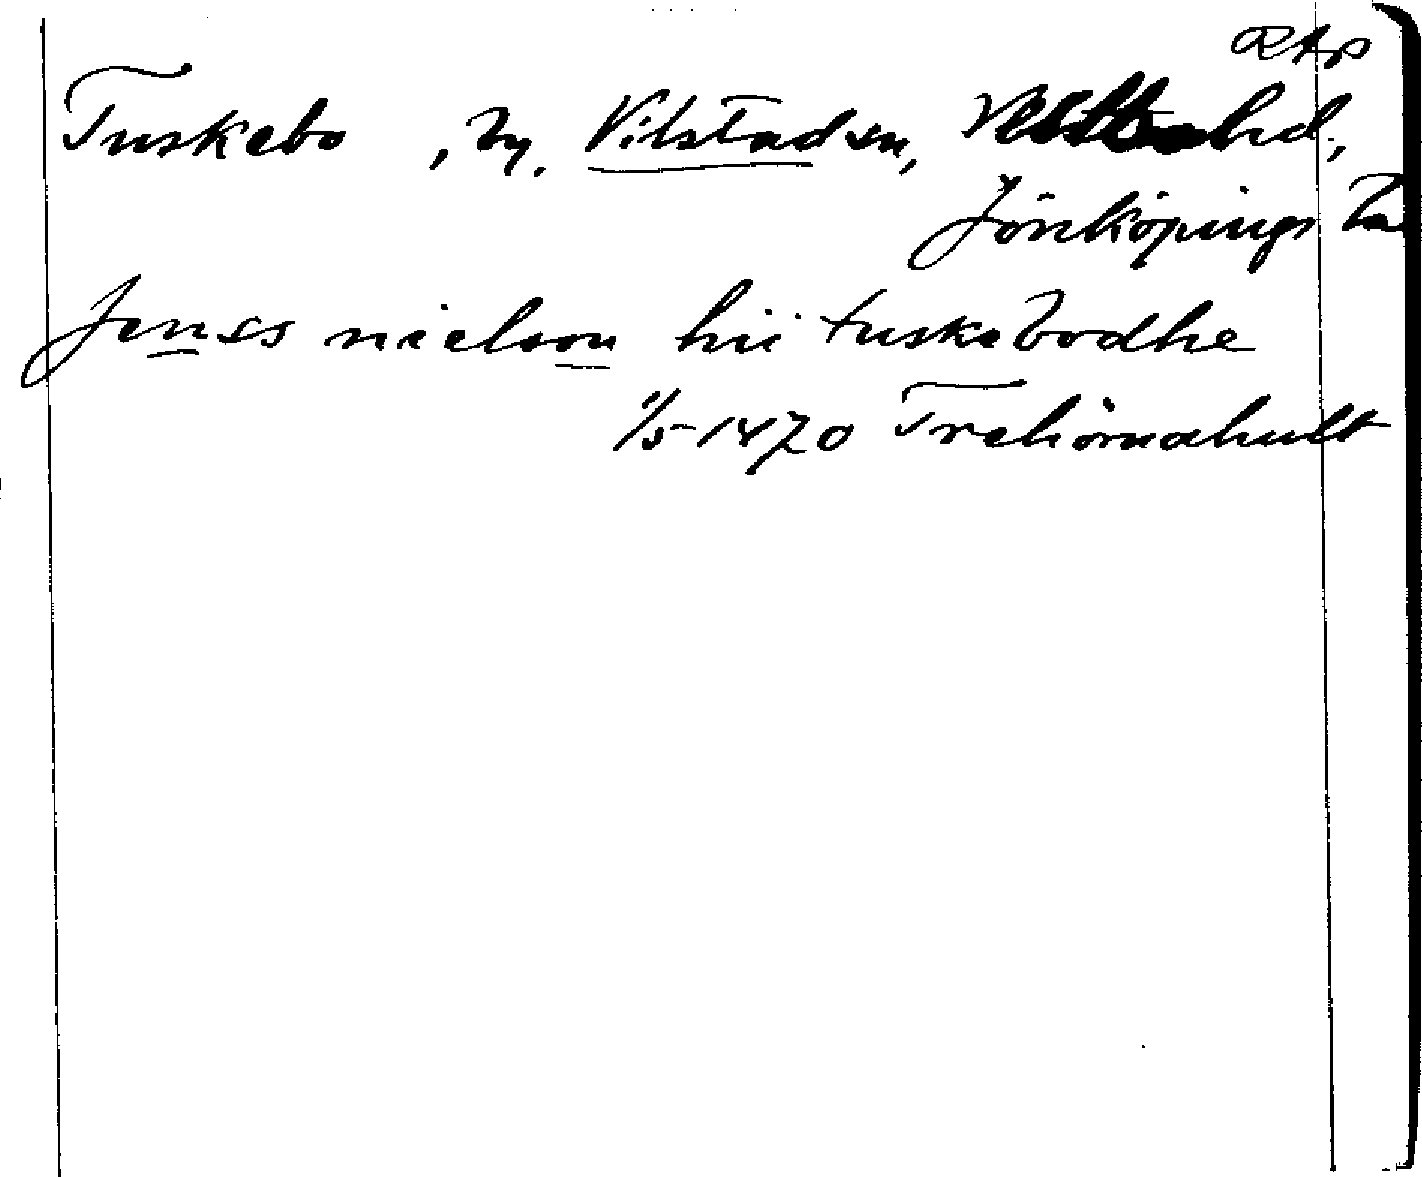 RAp
Tuskebo, by, Vilstad sn, hd,
Jönköpings
Jenss nielson hii tuskebodhe
1/5 1470 Trehörnahult